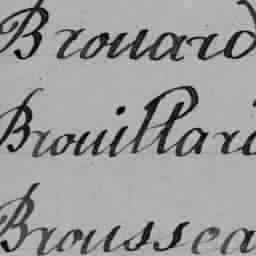 Brouard
Brouillard
Broussea